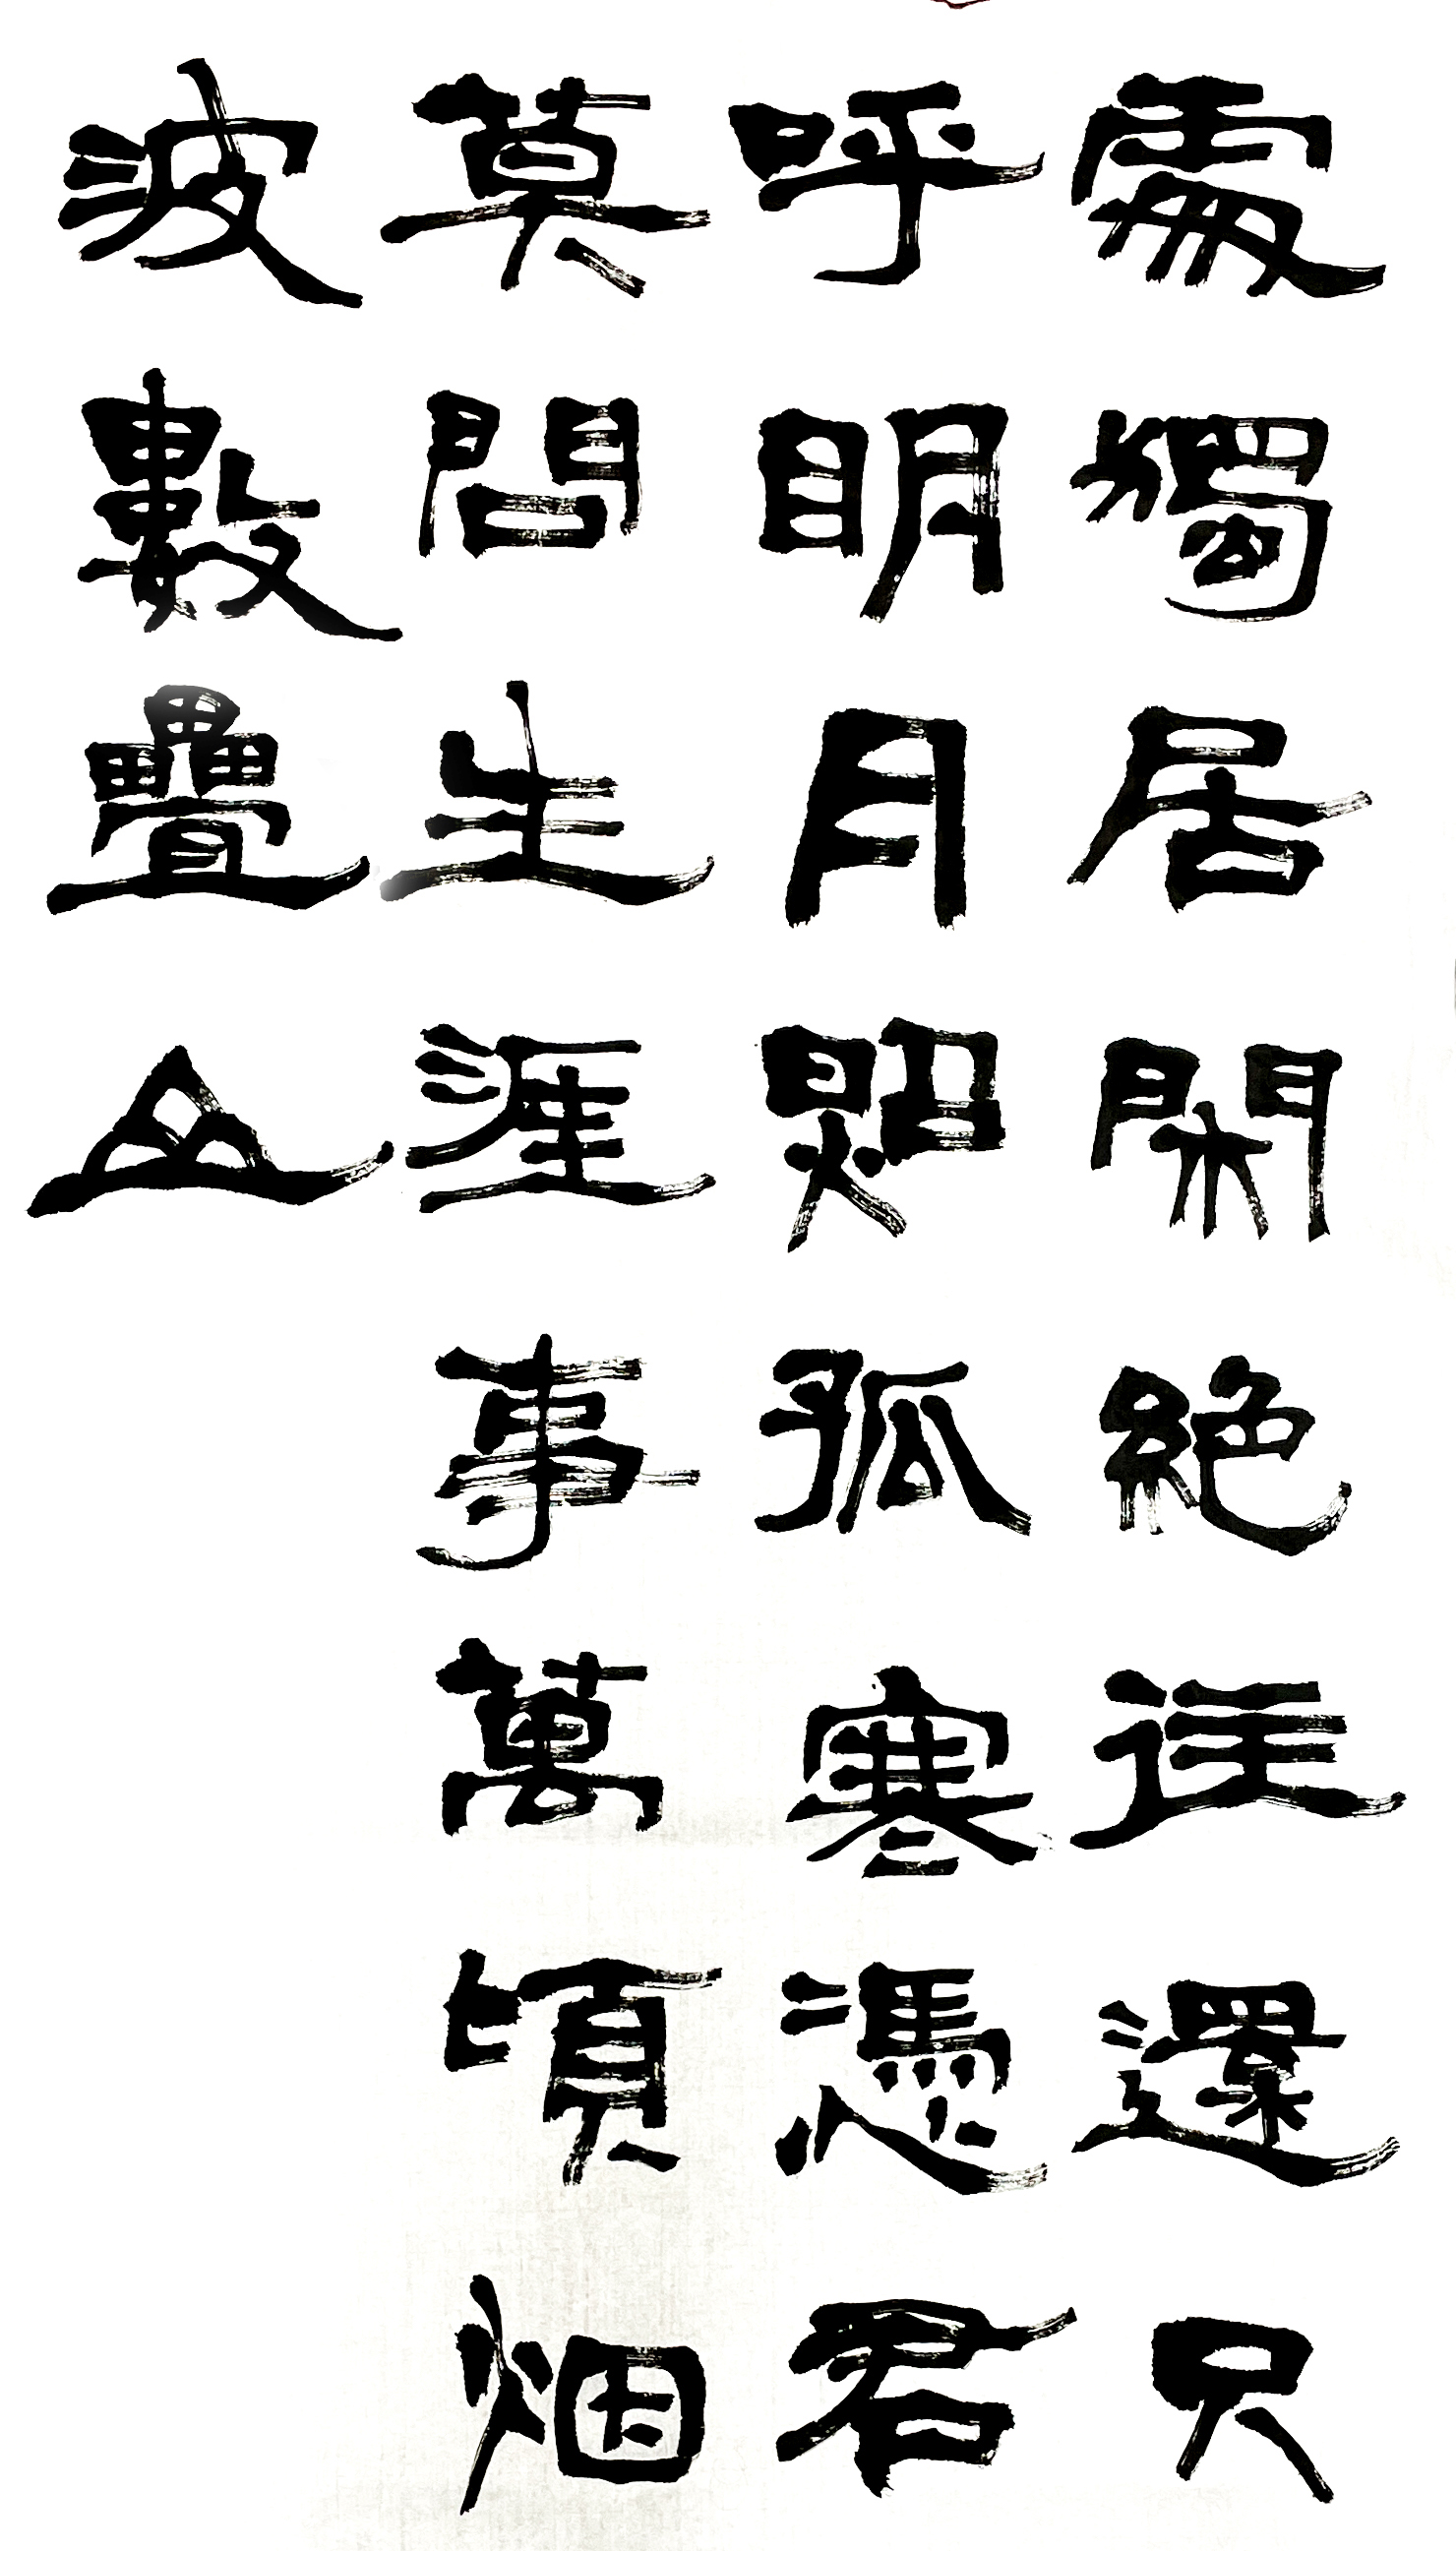 處獨居閑絕往還只
呼明月照孤寒憑君
莫問生涯事萬頃烟
波數疊山